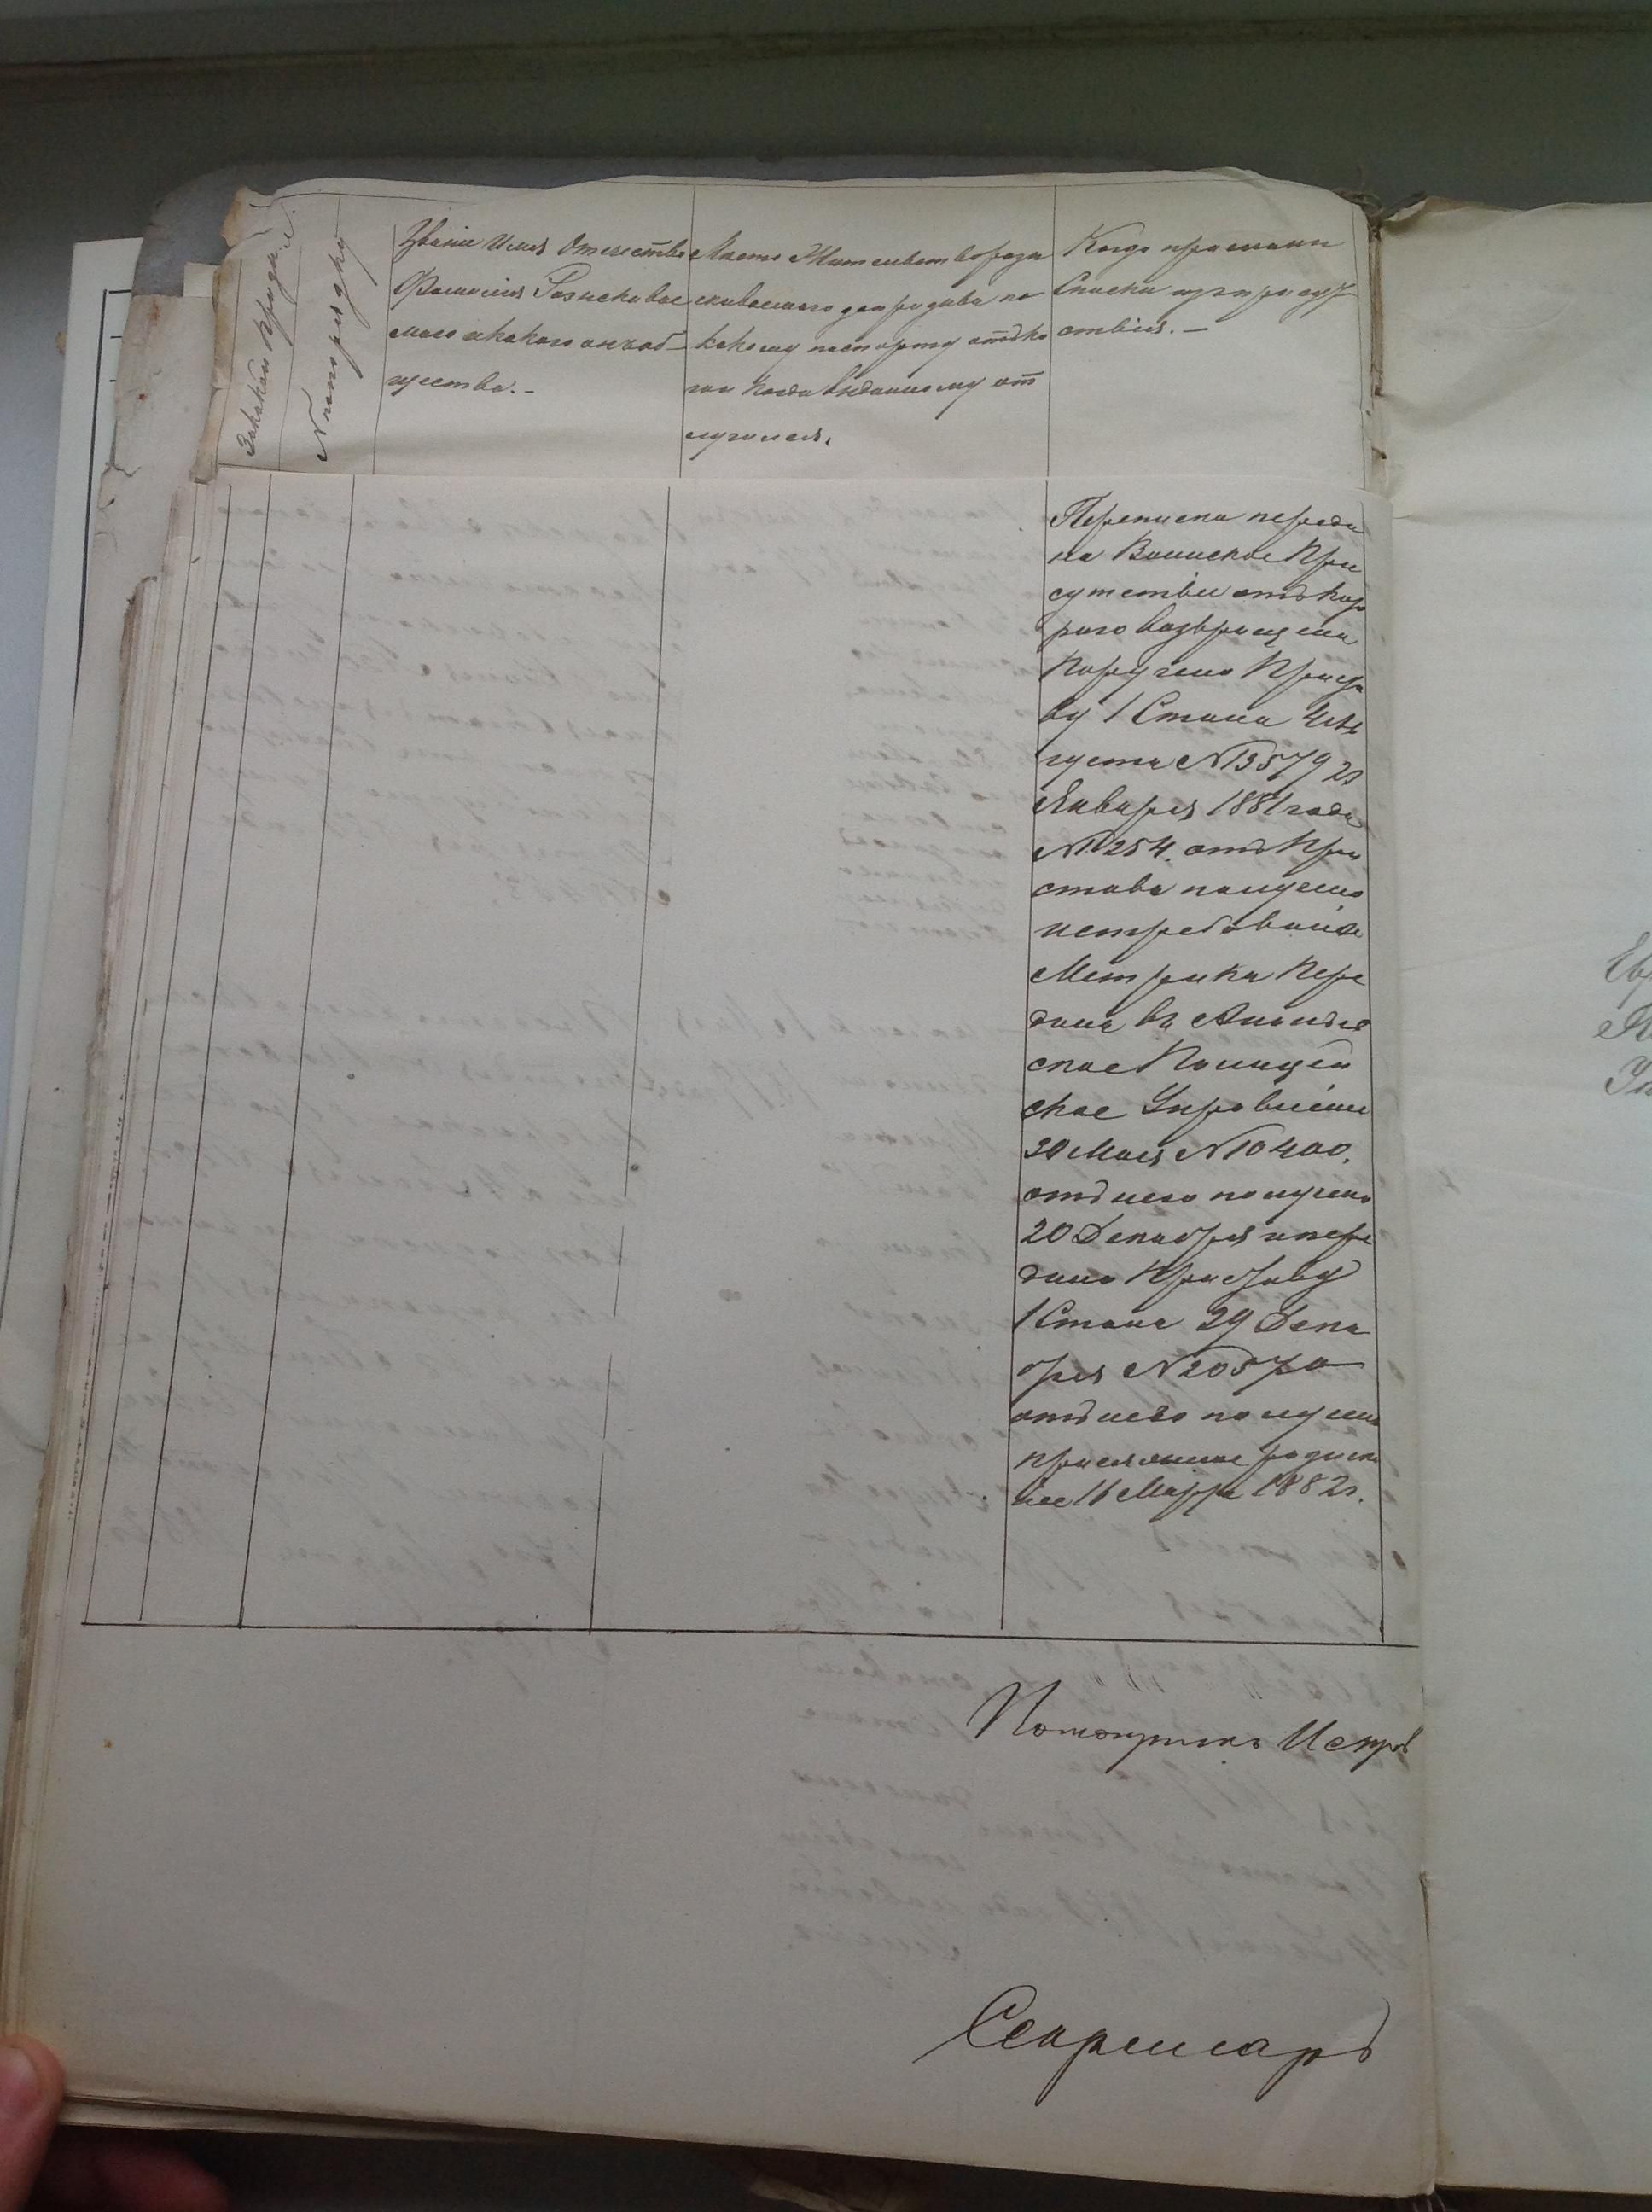 За какой призыв.
№ по порядку
Званіе Имя Отечество
Фамилія Разыскивае
маго и какого онъ об-
щества. -
Место Жительства разы
скиваемаго до призыва по
какому паспорту отъ ко
го и когда выданному от
лучился.
Когда присланы
Списки изъ присут
ствія. -
Переписка переда
на Воинское При
сутствіе отъ кото
раго возвращена
Поручено Приста
ву 1 Стана 4 Ав
густа № 13579 2
Января 1881 года
№ 254. отъ При
става получено
истребованіе
Метрика Пере
дана въ
ское Полицей
ское Управленіе
30 Мая № 10400.
отъ него получено
20 Декабря и пере
дано Приставу
1 Стана 29 Дека
бря № 20570
отъ него получено
16 Марта 1882 г.
Помощникъ Исправ
Секретарь